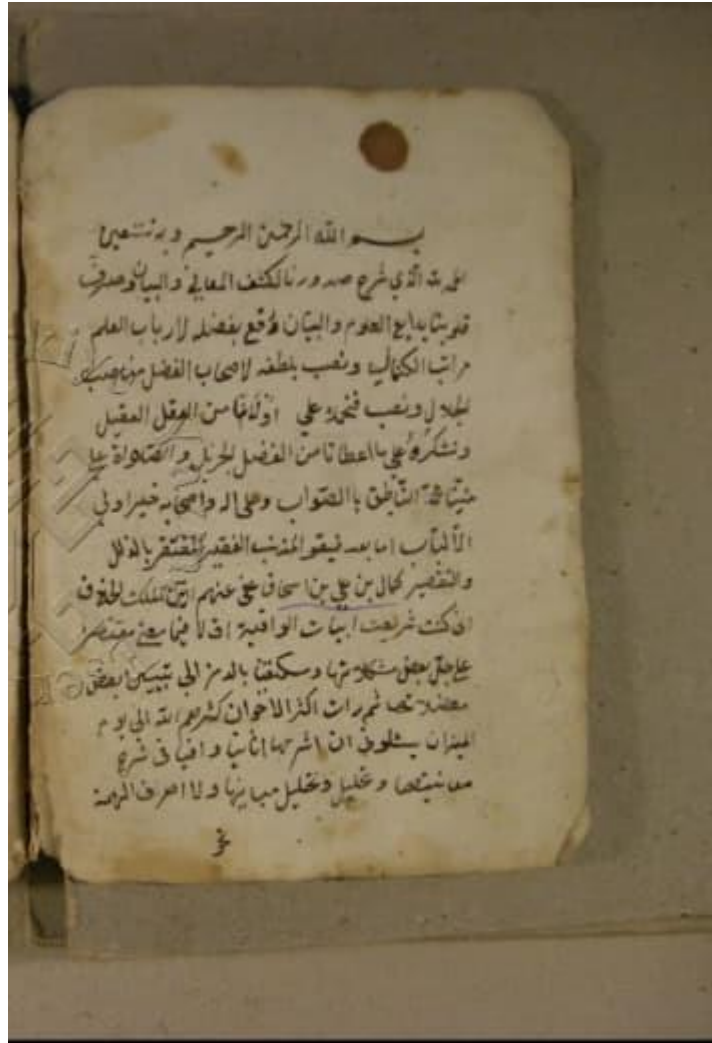 بسم الله الرحمن الرحيم وبه نستعين
الحمد لله الذي شرح صدورنا لكشف المعاني والبيان وصرف
قلوبنا بدايع العلوم والبيان ورفع بفضله لارباب العلم
مراتب الكمال ونصب بلطفه لاصحاب الفضل مناصب
الجلال ونصب فنحمده علي اولانا من العقل العقيل
ونشكره علي ما اعطانا من الفضل الجزيل والصلواة علي
نبينا محمد الناطق باالصواب وعلى اله واصحابه خير اولي
الألباب اما بعد فيقو المذنب الفقير المفتقر بالذلل
والتقصير كمال بن علي بن اسحاق عفى عنهم الملك الخلاق
اني كنت شرحت ابيات الوافية اولا فيما مضى مقتصرا
علي حل بعض مشكلاتها وسكتنا بالرمز الي تبيين بعض
معضلاتها ثم رات اكثر الاخوان كثرهم الله الي يوم
الميزان يسئلوني ان اشرحها ثانيا وافيا في شرح
معانيتها وتحليل وتحليل مبانيها ولا اصرف الهمة
نحو